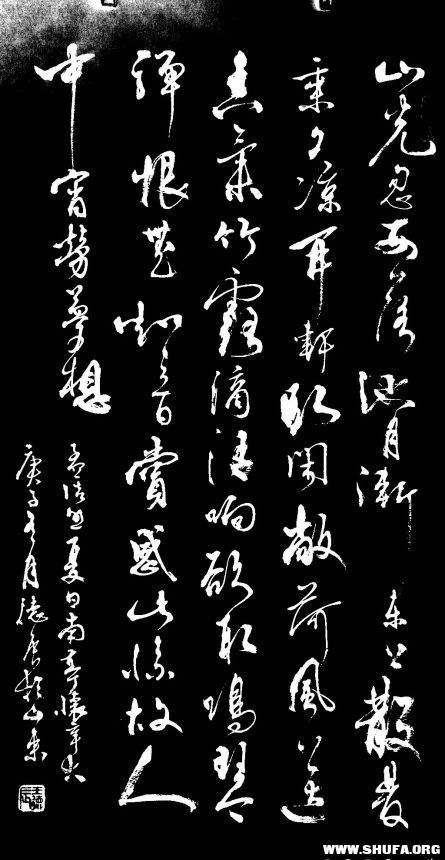 山光忽西落池月漸東上散髮
乘夕涼開軒卧閑敞荷風送
香氣竹露滴清响欲取鳴琴
彈恨無知音賞感此懷故人
中宵勞夢想
孟浩然夏日南亭懷辛大
庚子月
WWW.SHUFA.ORG